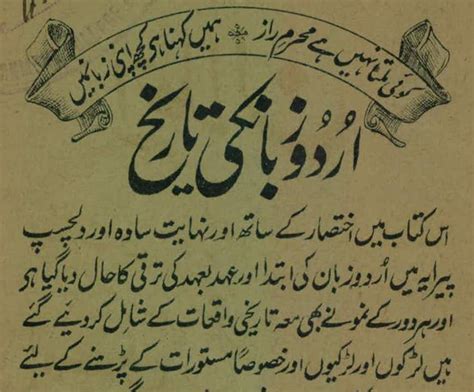 کوئی نہیں ہے محرم راز ہمیں کہنا ہے کچھ اپنی زبان میں
اُردو زبان کی تاریخ
اس کتاب میں اختصار کے ساتھ اور نہایت سادہ اور دلچسپ
پیرایہ میں اُردو زبان کی ابتدا اور عہد بعہد کی ترقی کا حال دیا گیا ہی
اور ہر دور کے نمونے بھی معہ تاریخی واقعات کے شامل کر دیئے گئے
ہیں لڑکوں اور لڑکیوں اور خصوصاً مستورات کے پڑھنے کے لیئے